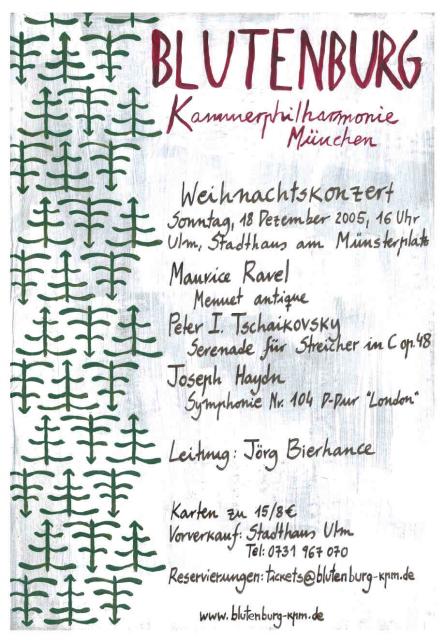 BLUTENBURG
Kammerphilharmonie
München
Weihnachtskonzert
Sonntag, 18 Dezember 2005, 16 Uhr
Ulm, Stadthaus am Münsterplatz
Maurice Ravel
Menuet antique
Peter I. Tschaikovsky
Serenade für Streicher in C op. 48
Joseph Haydn
Symphonie Nr. 104 D-Dur "London"
Leitung: Jörg Bierhance
Karten zu 15/8€
Vorverkauf: Stadthaus Ulm
Tel: 0731 967 070
Reservierungen: tickets@blutenburg-kpm.de
www.blutenburg-kpm.de